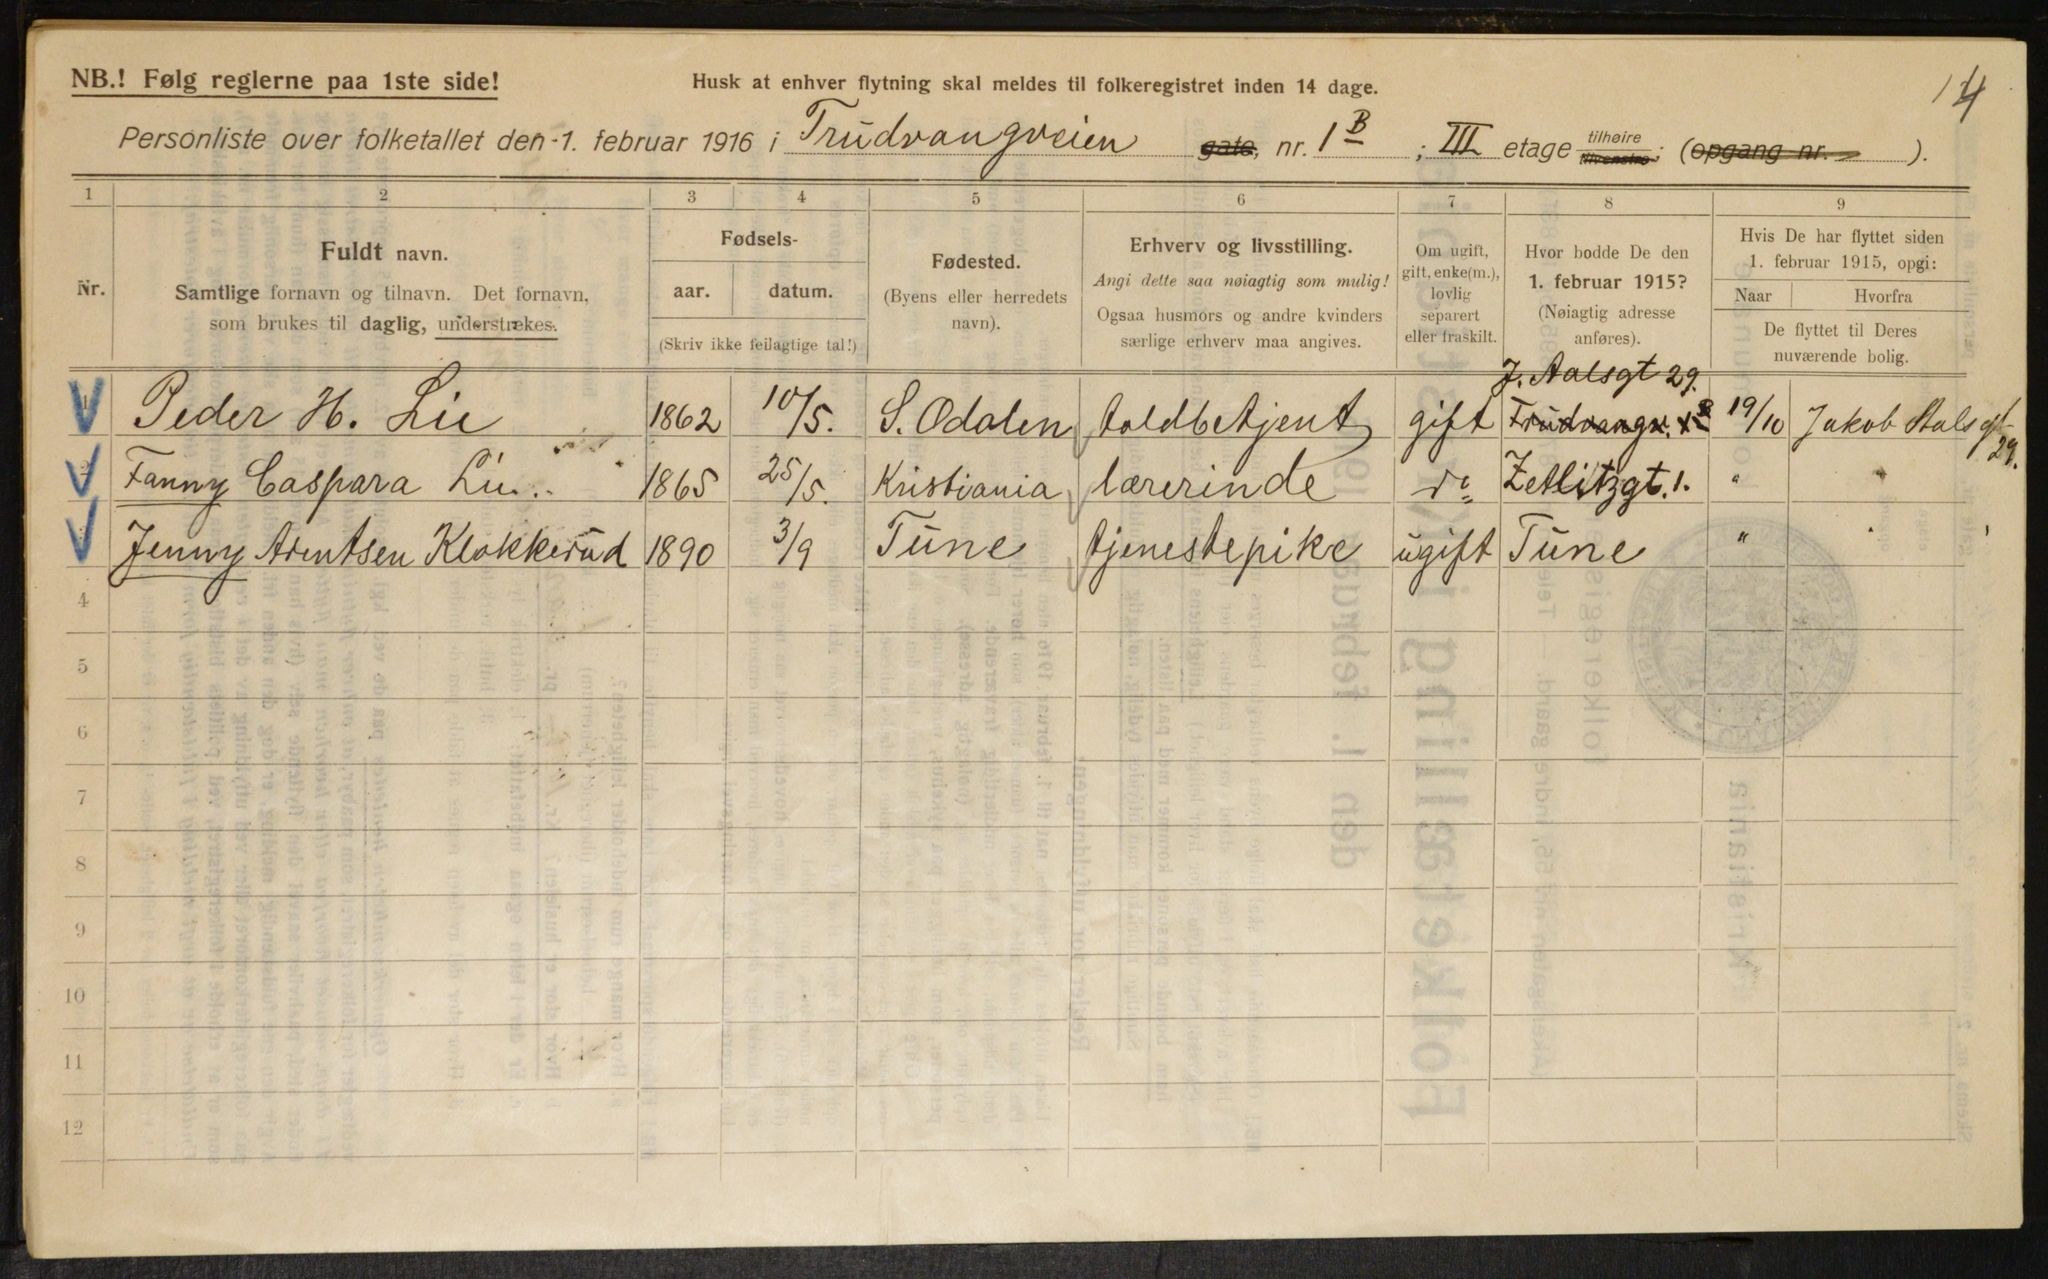 NB.! Følg reglerne paa 1ste side!
Husk at enhver flytning skal meldes til folkeregistret inden 14 dage.
14
Personliste over folketallet den 1. februar 1916 i Trudvangveien gate, nr. 1 B; III etage tilhøire tilvenstre; (opgang nr. ).
1 2 3 4 5 6 7 8 9
Nr.
Fuldt navn.
Samtlige fornavn og tilnavn. Det fornavn,
som brukes til daglig, understrekes.
Fødsels-
aar. datum.
(Skriv ikke feilagtige tal!)
Fødested.
(Byens eller herredets
navn).
Erhverv og livsstilling.
Angi dette saa nøiagtig som mulig!
Ogsaa husmors og andre kvinders
særlige erhverv maa angives.
Om ugift,
gift, enke(m.),
lovlig
separert
eller fraskilt.
Hvor bodde De den
1. februar 1915?
(Nøiagtig adresse
anføres).
Hvis De har flyttet siden
1. februar 1915, opgi:
Naar Hvorfra
De flyttet til Deres
nuværende bolig.
J. Aalsgt 29.
1 Peder H. Lie 1862 10/5. S. Odalen toldbetjent gift Trudvangv. 1 B 19/10 Jakob Aals gt 29.
2 Fanny Caspara Lie 1865 25/5. Kristiania lærerinde do Zetlitzgt. 1. " "
Jenny Arentsen Klokkerud 1890 3/9 Tune tjenestepike ugift Tune " "
4
5
6
7
8
9
10
11
12